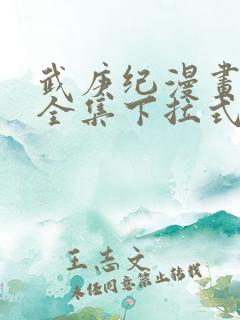 武庚纪漫畫
全集下拉式
王志文
未经同意禁止转载